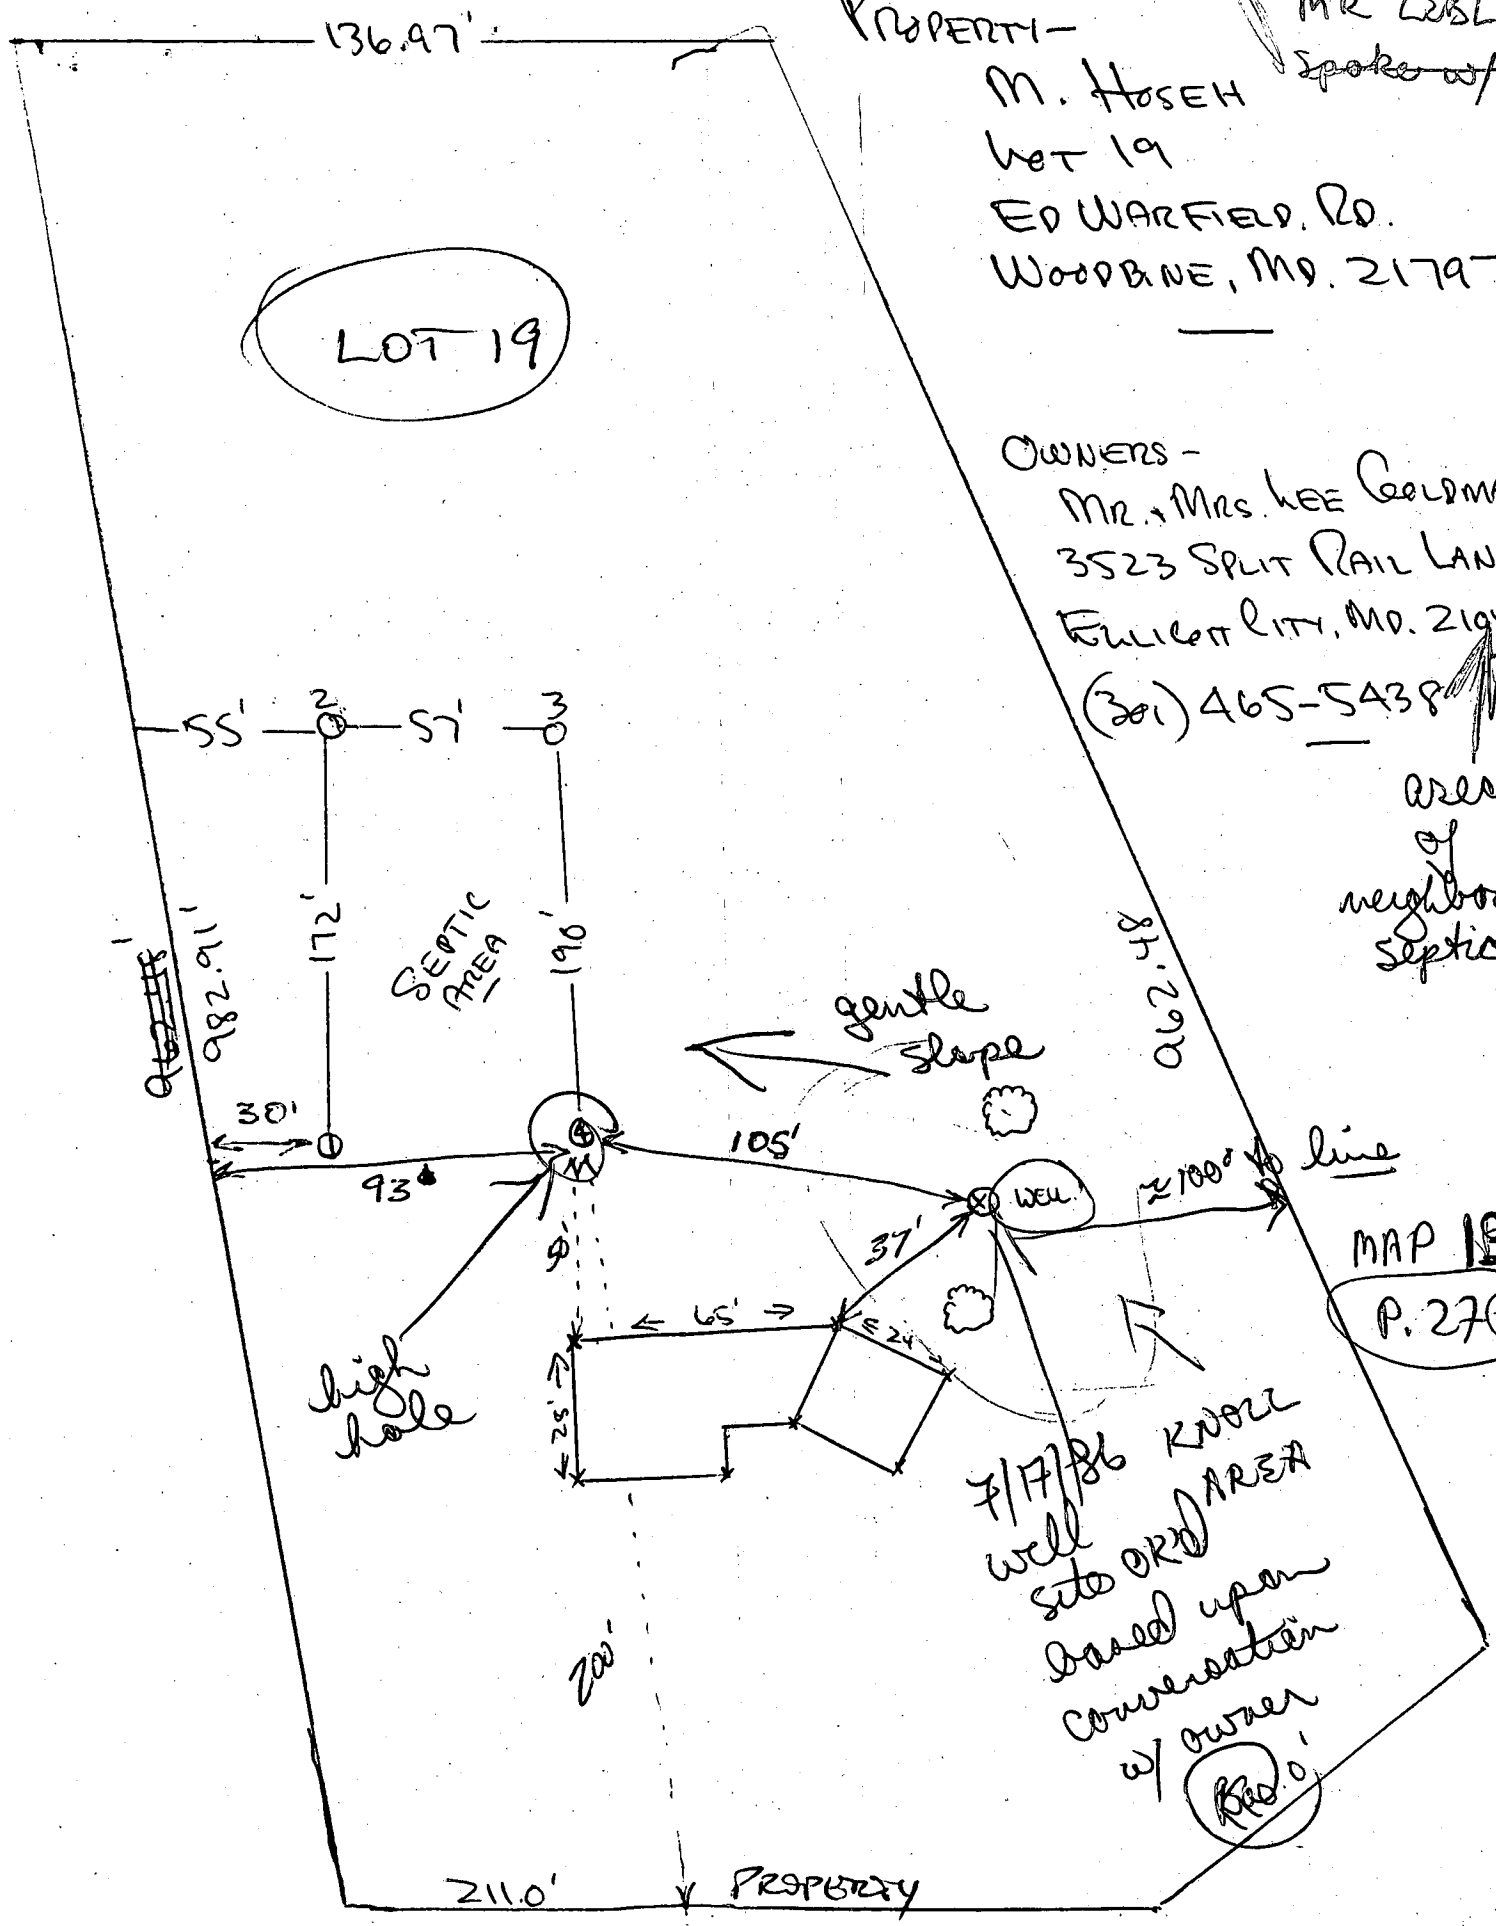 136.97'
PROPERTY-
MR LEBL
spoke w/
M. HOSEH
LOT 19
ED WARFIELD. RD.
WOODBINE, MD. 21797
LOT 19
OWNERS -
MR. & MRS. LEE GOLDMA
3523 SPLIT RAIL LAN
ELLICOTT CITY, MD. 210
(301) 465-5438
area
of
neighbor
septic
2
3
55'
57'
172'
190'
SEPTIC
AREA
982.91'
962.48
gentle
slope
30'
1
4
93'
105'
WELL
≈100' to line
37'
50'
MAP
P. 270
65'
24
28'
high
hole
7/17/86 KNOLL
AREA
well
site OK'd
based upon
conversation
w/ owner
200'
211.0'
PROPERTY